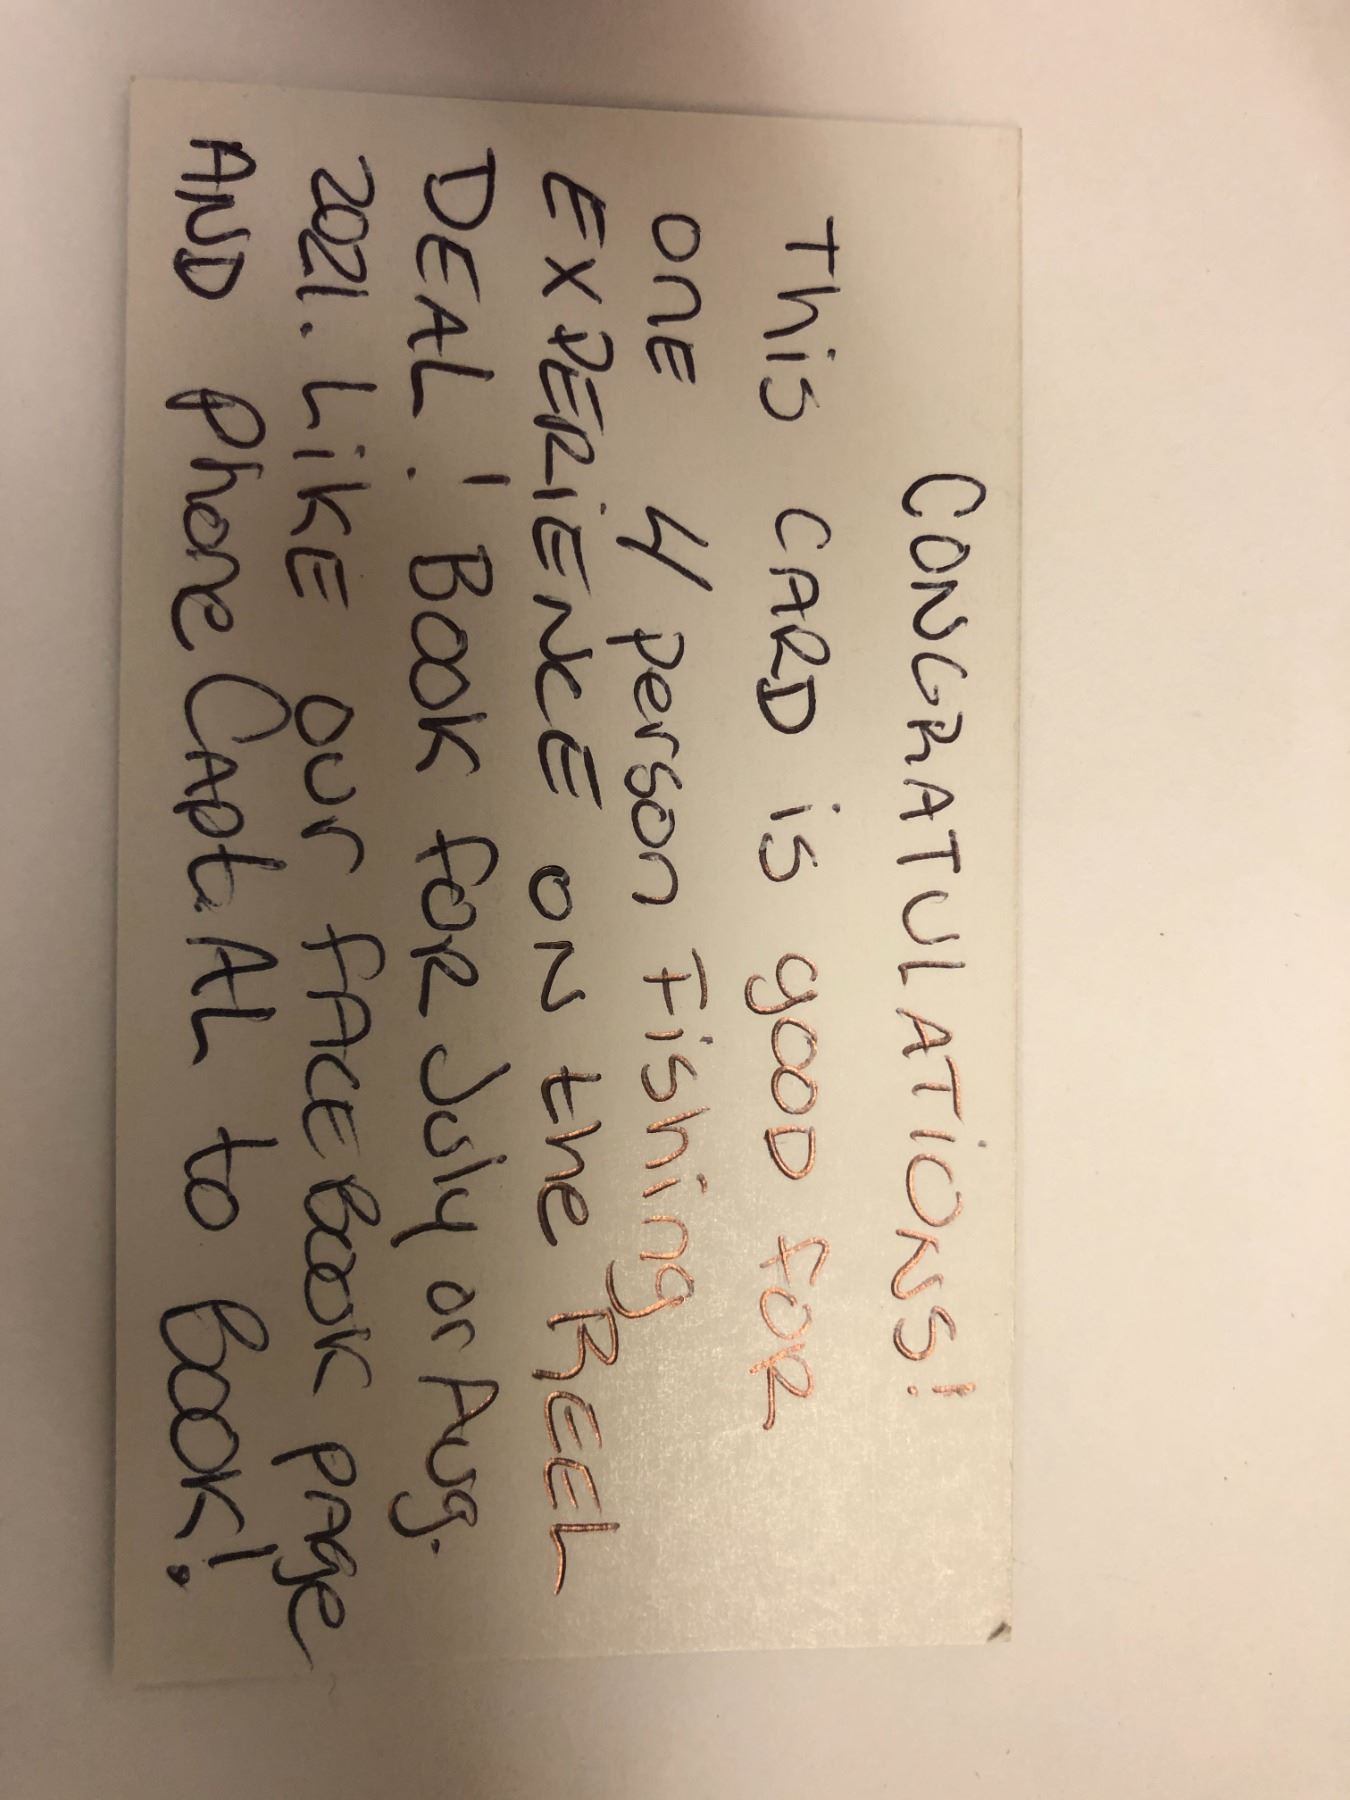 CONGRATULATIONS!
This CARD is gOOD for
one 4 person Fishing
EXPERIENCE ON the REEL
DEAL! Book for July or Aug.
2021. Like our FACEBOOK page
AND Phone Capt. AL to Book!